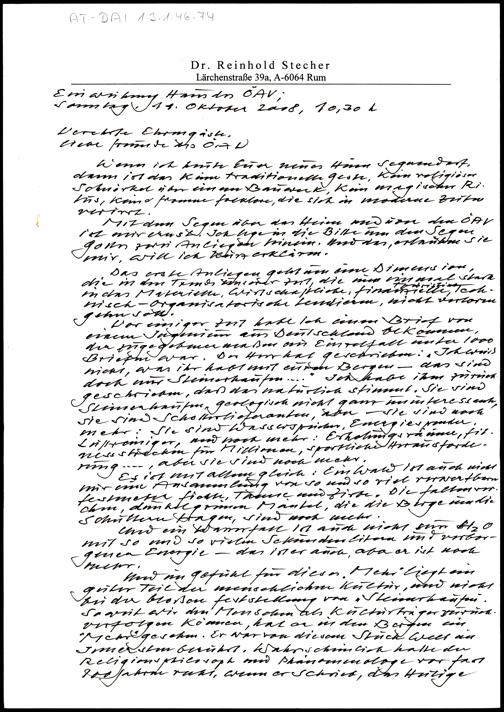 AT-DAI 12.1.46.74
Dr. Reinhold Stecher
Lärchenstraße 39a, A-6064 Rum
Einweihung Haus des ÖAV;
Sonntag, 19. Oktober 2008, 10,30 h
Verehrte Ehrengäste,
liebe Freunde des ÖAV
Wenn ich heute Euer neues Haus segnen darf,
dann ist das keine traditionelle Geste, kein religiöser
Schnörkel über einem Bauwerk, kein magischer Ri-
tus, keine fromme Folklore, die sich in moderne Zeiten
verirrt.
Mit dem Segen über das Heim und den ÖAV
ist mir ernst. Ich lege in die Bitte um den Segen
Gottes zwei Anliegen hinein. Und das, erlauben Sie
mir, will ich kurz erklären.
Das erste Anliegen geht um eine Dimension,
die in den unserer Zeit, die nun einmal stark
in das Materielle, Wirtschaftliche, finanzielle, Tech-
nisch-Organisatorische tendieren, nicht verloren
gehn soll.
Vor einiger Zeit habe ich einen Brief von
einem Ingenieur aus Deutschland bekommen,
der zugegebenermaßen ein Einzelfall unter 1000
Briefen war. Der Herr hat geschrieben: "Ich weiß
nicht, was ihr habt mit euren Bergen – das sind
doch nur Steinerhaufen..." Ich habe ihm zurück
geschrieben, daß das natürlich stimmt. Sie sind
Steinerhaufen, geologisch nicht ganz uninteressant,
sie sind Schotterlieferanten, aber – sie sind noch
mehr: Sie sind Wasserspeicher, Energiespender,
Luftreiniger, und noch mehr: Erholungsräume, Fit-
nessstrecken für Millionen, sportliche Herausforde-
rung ..., aber sie sind noch mehr.
Es ist mit allem gleich: Ein Wald ist auch nicht
nur eine Ansammlung von so und so viel verwertbaren
Festmetern Fichte, Tanne und Zirbe. Die
dunkelgrünen Mantel, die die Berge um die
Schultern tragen, sind noch mehr.
Und ein Wasserfall ist auch nicht nur H2O
mit so und so vielen Sekundenlitern und verbor-
gener Energie – das ist er auch, aber er ist noch
mehr.
Und im Gefühl für dieses "Mehr" liegt ein
guter Teil der menschlichen Kultur, und nicht
bei der bloßen Feststellung von Steinerhaufen.
Soweit wir den Menschen als Kulturträger zurück-
verfolgen können, hat er in den Bergen ein
"Mehr" gesehn. Er war von diesem Stück Welt im
Innersten berührt. Wahrscheinlich hatte der
Religionsphilosoph und Phänomenologe vor fast
100 Jahren recht, wenn er schrieb, das Heilige